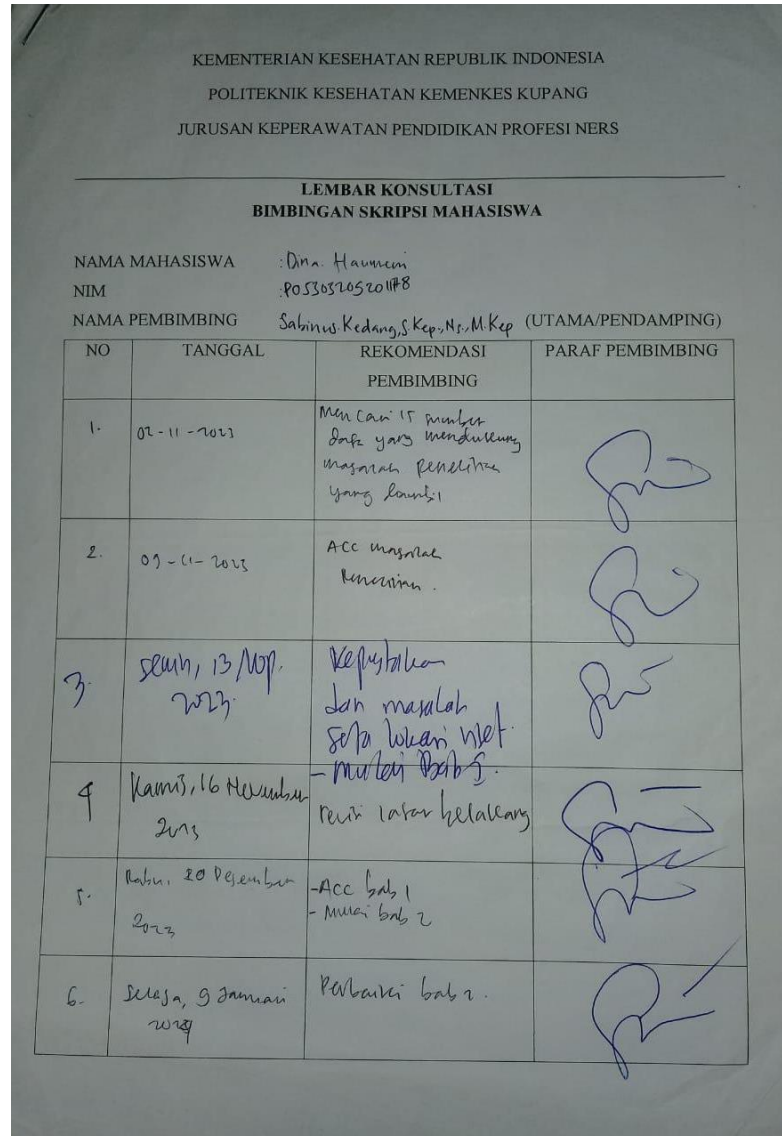 KEMENTERIAN KESEHATAN REPUBLIK INDONESIA
POLITEKNIK KESEHATAN KEMENKES KUPANG
JURUSAN KEPERAWATAN PENDIDIKAN PROFESI NERS
LEMBAR KONSULTASI
BIMBINGAN SKRIPSI MAHASISWA
NAMA MAHASISWA : Dina Haumeni
NIM : PO5303205201178
NAMA PEMBIMBING Sabinus Kedang, S.Kep., Ns., M.Kep (UTAMA/PENDAMPING)
NO TANGGAL REKOMENDASI PARAF PEMBIMBING
PEMBIMBING
1. 02-11-2023 Mencari 15 sumber
data yang mendukung
masalah penelitian
yang
2. 09-11-2023 ACC masalah
Penelitian.
3. Senin, 13/Nop. Kepustakaan
2023. dan masalah
serta lokasi riset.
- mulai Bab 1.
4 Kamis, 16 November
2023 revisi latar belakang
5. Rabu, 20 Desember -Acc bab 1
2023 - Mulai bab 2
6. Selasa, 9 Januari Perbaiki bab 2.
2024